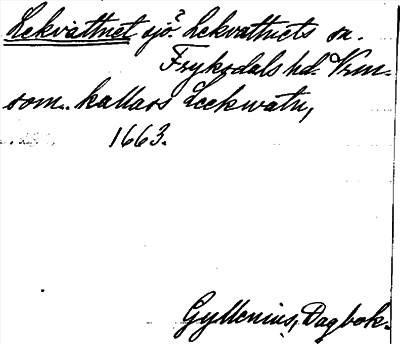 Lekvattnet sjö? Lekvattnets sn.
Fryksdals hd. Vrm.
som kallas Leekwatn,
1663.
Gyllenius, Dagbok.